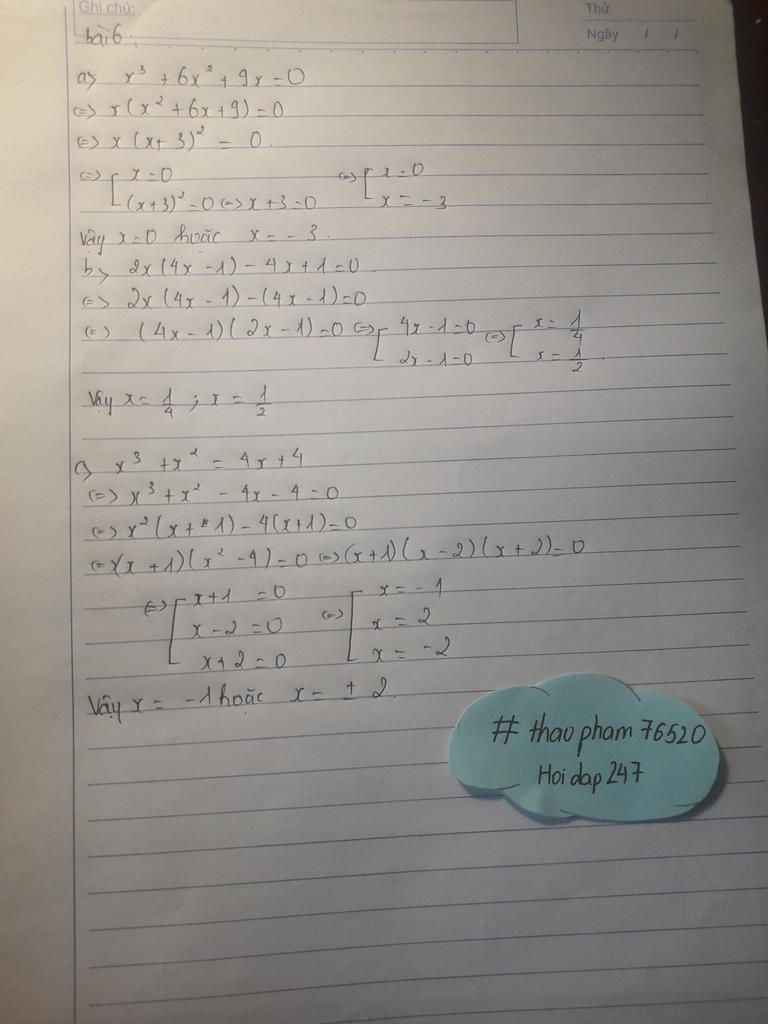 Ghi chú:
Thứ
Ngày / /
bài 6:
a) x³ + 6x² + 9x = 0
(=) x(x² + 6x + 9) = 0
(=) x(x + 3)² = 0
(=) [ x = 0 (=) [ x = 0
(x+3)² = 0 (=) x + 3 = 0 x = -3
Vậy x = 0 hoặc x = -3.
b) 2x(4x - 1) - 4x + 1 = 0
(=) 2x(4x - 1) - (4x - 1) = 0
(=) (4x - 1)(2x - 1) = 0 (=) [ 4x - 1 = 0 (=) [ x = 1/4
2x - 1 = 0 x = 1/2
Vậy x = 1/4 ; x = 1/2
c) x³ + x² = 4x + 4
(=) x³ + x² - 4x - 4 = 0
(=) x²(x + 1) - 4(x + 1) = 0
(=) (x + 1)(x² - 4) = 0 (=) (x + 1)(x - 2)(x + 2) = 0
(=) [ x + 1 = 0 (=) [ x = -1
x - 2 = 0 x = 2
x + 2 = 0 x = -2
Vậy x = -1 hoặc x = ± 2.
# thao pham 76520
Hoi dap 247